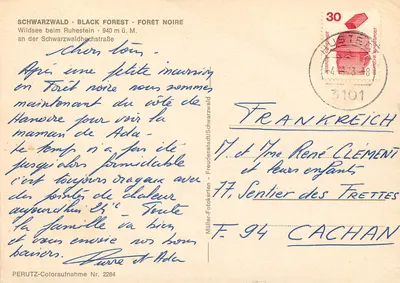 SCHWARZWALD · BLACK FOREST · FORET NOIRE
Wildsee beim Ruhestein · 940 m ü. M.
an der Schwarzwaldhochstraße
Chers tous.
Après une petite incursion
en Forêt noire nous sommes
maintenant du côté de
Hanovre pour voir la
maman de Ada.
Le temps n'a pas été
jusqu'alors formidable
c'est toujours orageux avec
des pointes de chaleur
aujourd'hui Toute
la famille va bien
et vous envoie nos bons
baisers. Pierre et Ada
PERUTZ-Coloraufnahme Nr. 2284
Müller-Fotokarten · Freudenstadt/Schwarzwald
30
3101
FRANKREICH
M. et Mme René CLÉMENT
et leurs enfants
77, Sentier des TRETTES
F. 94 CACHAN